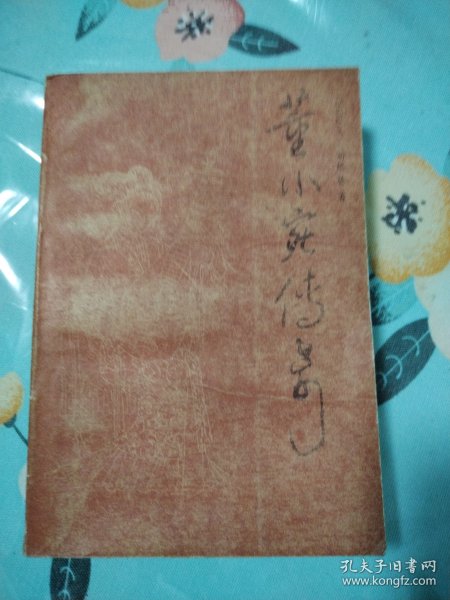 董小宛传奇
孔夫子旧书网
www.kongfz.com